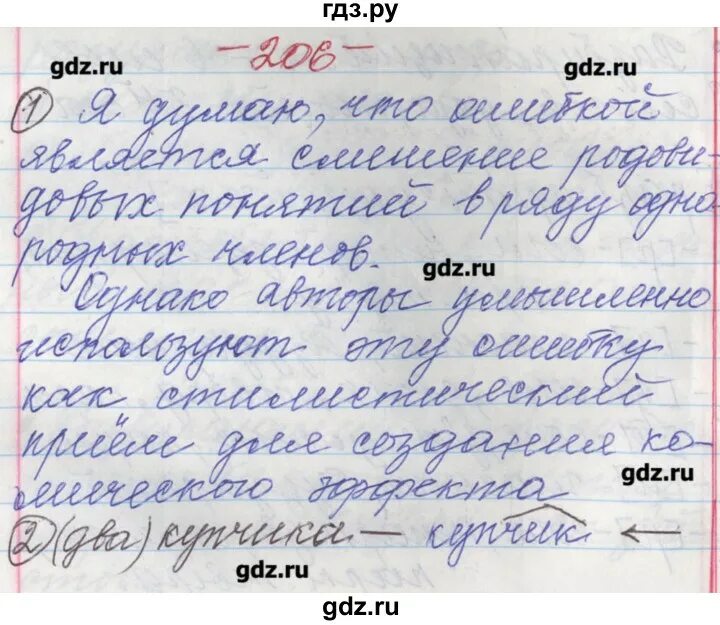 гдз.ру
-206-
gdz.ru
gdz.ru
① Я думаю, что ошибкой
является смешение родови-
довых понятий в ряду одно
родных членов.
gdz.ru
Однако авторы умышленно
используют эту ошибку
как стилистический
приём для создания ко-
gdz.ru
мического эффекта
② (два) купчика — купчик ←
gdz.ru
gdz.ru